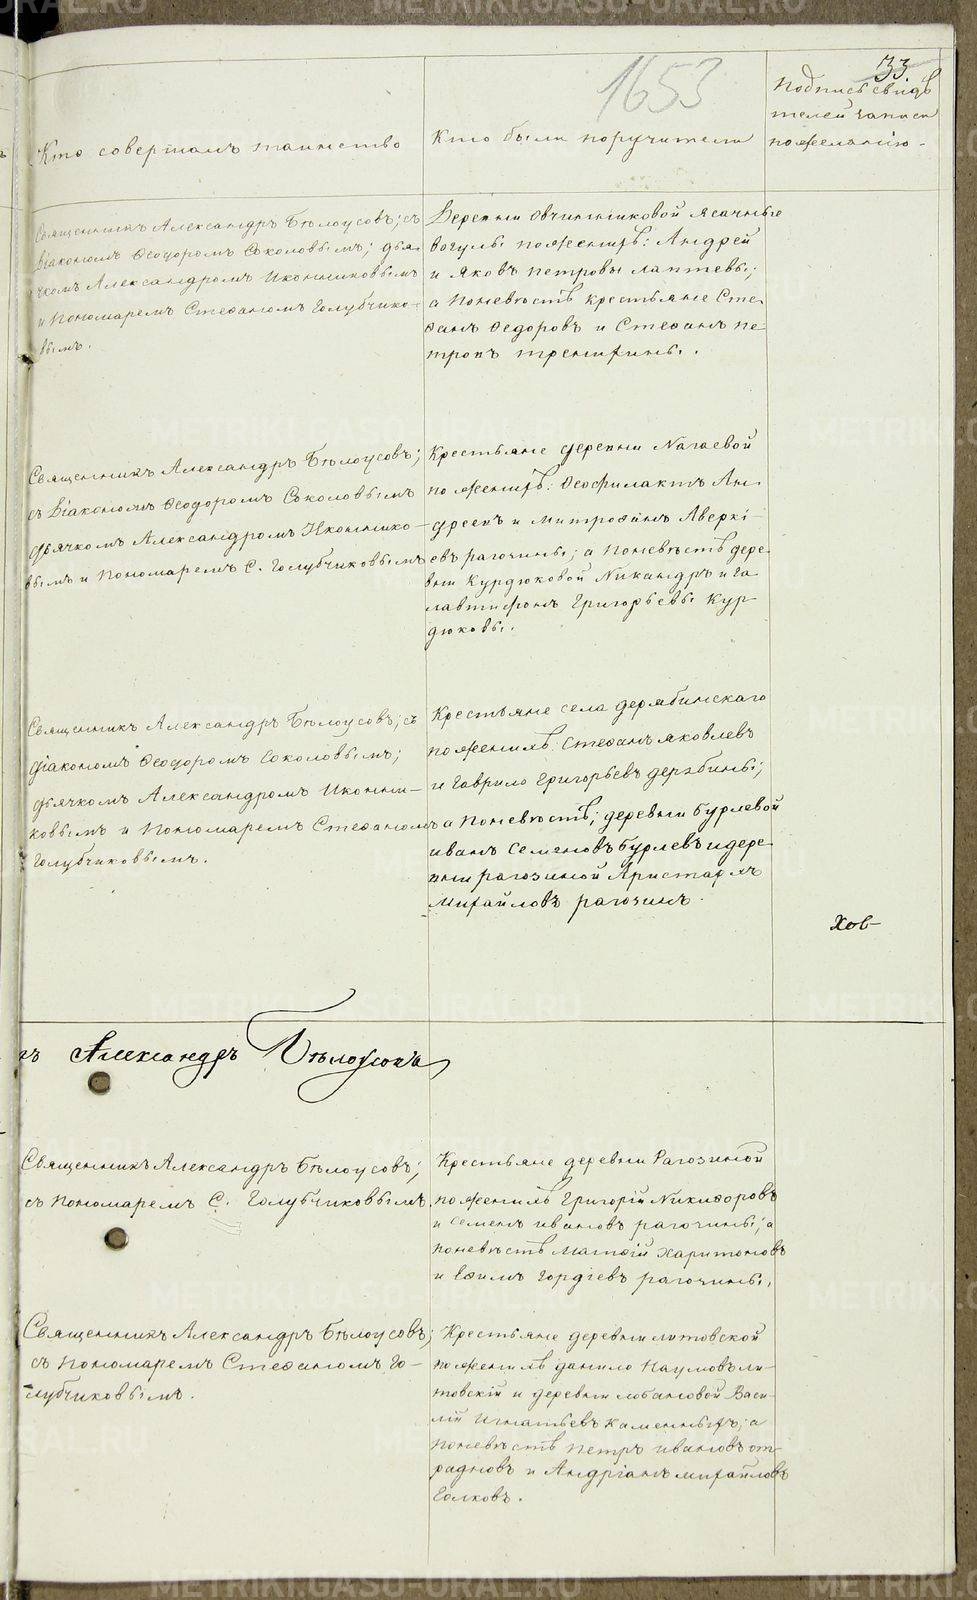 1653
33.
Кто совершалъ таинство
Кто были поручители
Подпись свидѣ
телей записи
по желанію.
Священникъ Александръ Бѣлоусовъ; съ
Діакономъ Ѳеодоромъ Соколовымъ; дья
чкомъ Александромъ Иконниковымъ
и Пономаремъ Стефаномъ Голубчико-
вымъ.
Деревни Овчинниковой ясачные
вогулы по женихѣ: Андрей
и Яковъ Петровы Лаптевы;
а по невѣстѣ крестьяне Сте-
фанъ Ѳедоровъ и Стефанъ Пе-
тровъ Тренихины.
Священникъ Александръ Бѣлоусовъ;
съ Діакономъ Ѳеодоромъ Соколовымъ
дьячкомъ Александромъ Иконнико-
вымъ и Пономаремъ С. Голубчиковымъ
Крестьяне деревни Нагаевой
по женихѣ: Ѳеофилактъ Ан-
дреевъ и Митрофанъ Аверкі-
евъ Рагочины; а по невѣстѣ дере-
вни Курдюковой Никандръ и Га-
лактіонъ Григорьевы Кур-
дюковы.
Священникъ Александръ Бѣлоусовъ; съ
діакономъ Ѳеодоромъ Соколовымъ;
дьячкомъ Александромъ Иконни-
ковымъ и Пономаремъ Стефаномъ
Голубчиковымъ.
Крестьяне села Дерябинскаго
по женихѣ: Стефанъ Яковлевъ
и Гаврило Григорьевъ Дерябины;
а по невѣстѣ; деревни Бурлевой
Иванъ Семеновъ Бурлевъ и дере-
вни Рагозиной Аристархъ
Михайловъ Рагочинъ.
Хов-
ъ Александръ Бѣлоусовъ
Священникъ Александръ Бѣлоусовъ;
съ Пономаремъ С. Голубчиковымъ.
Крестьяне деревни Рагозиной
по женихѣ Григорій Никифоровъ
и Семенъ Ивановъ Рагочины; а
по невѣстѣ Матфій Харитоновъ
и Ефимъ Гордіевъ Рагочины.
Священникъ Александръ Бѣлоусовъ;
съ Пономаремъ Стефаномъ Го-
лубчиковымъ.
Крестьяне деревни Литовской
по женихѣ Данило Наумовъ Ли-
товскій и деревни Лобановой Васи-
лій Игнатьевъ Каменныхъ; а
по невѣстѣ Петръ Ивановъ От-
радновъ и Андріанъ Михайловъ
Волковъ.
METRIKI.GASO-URAL.RU